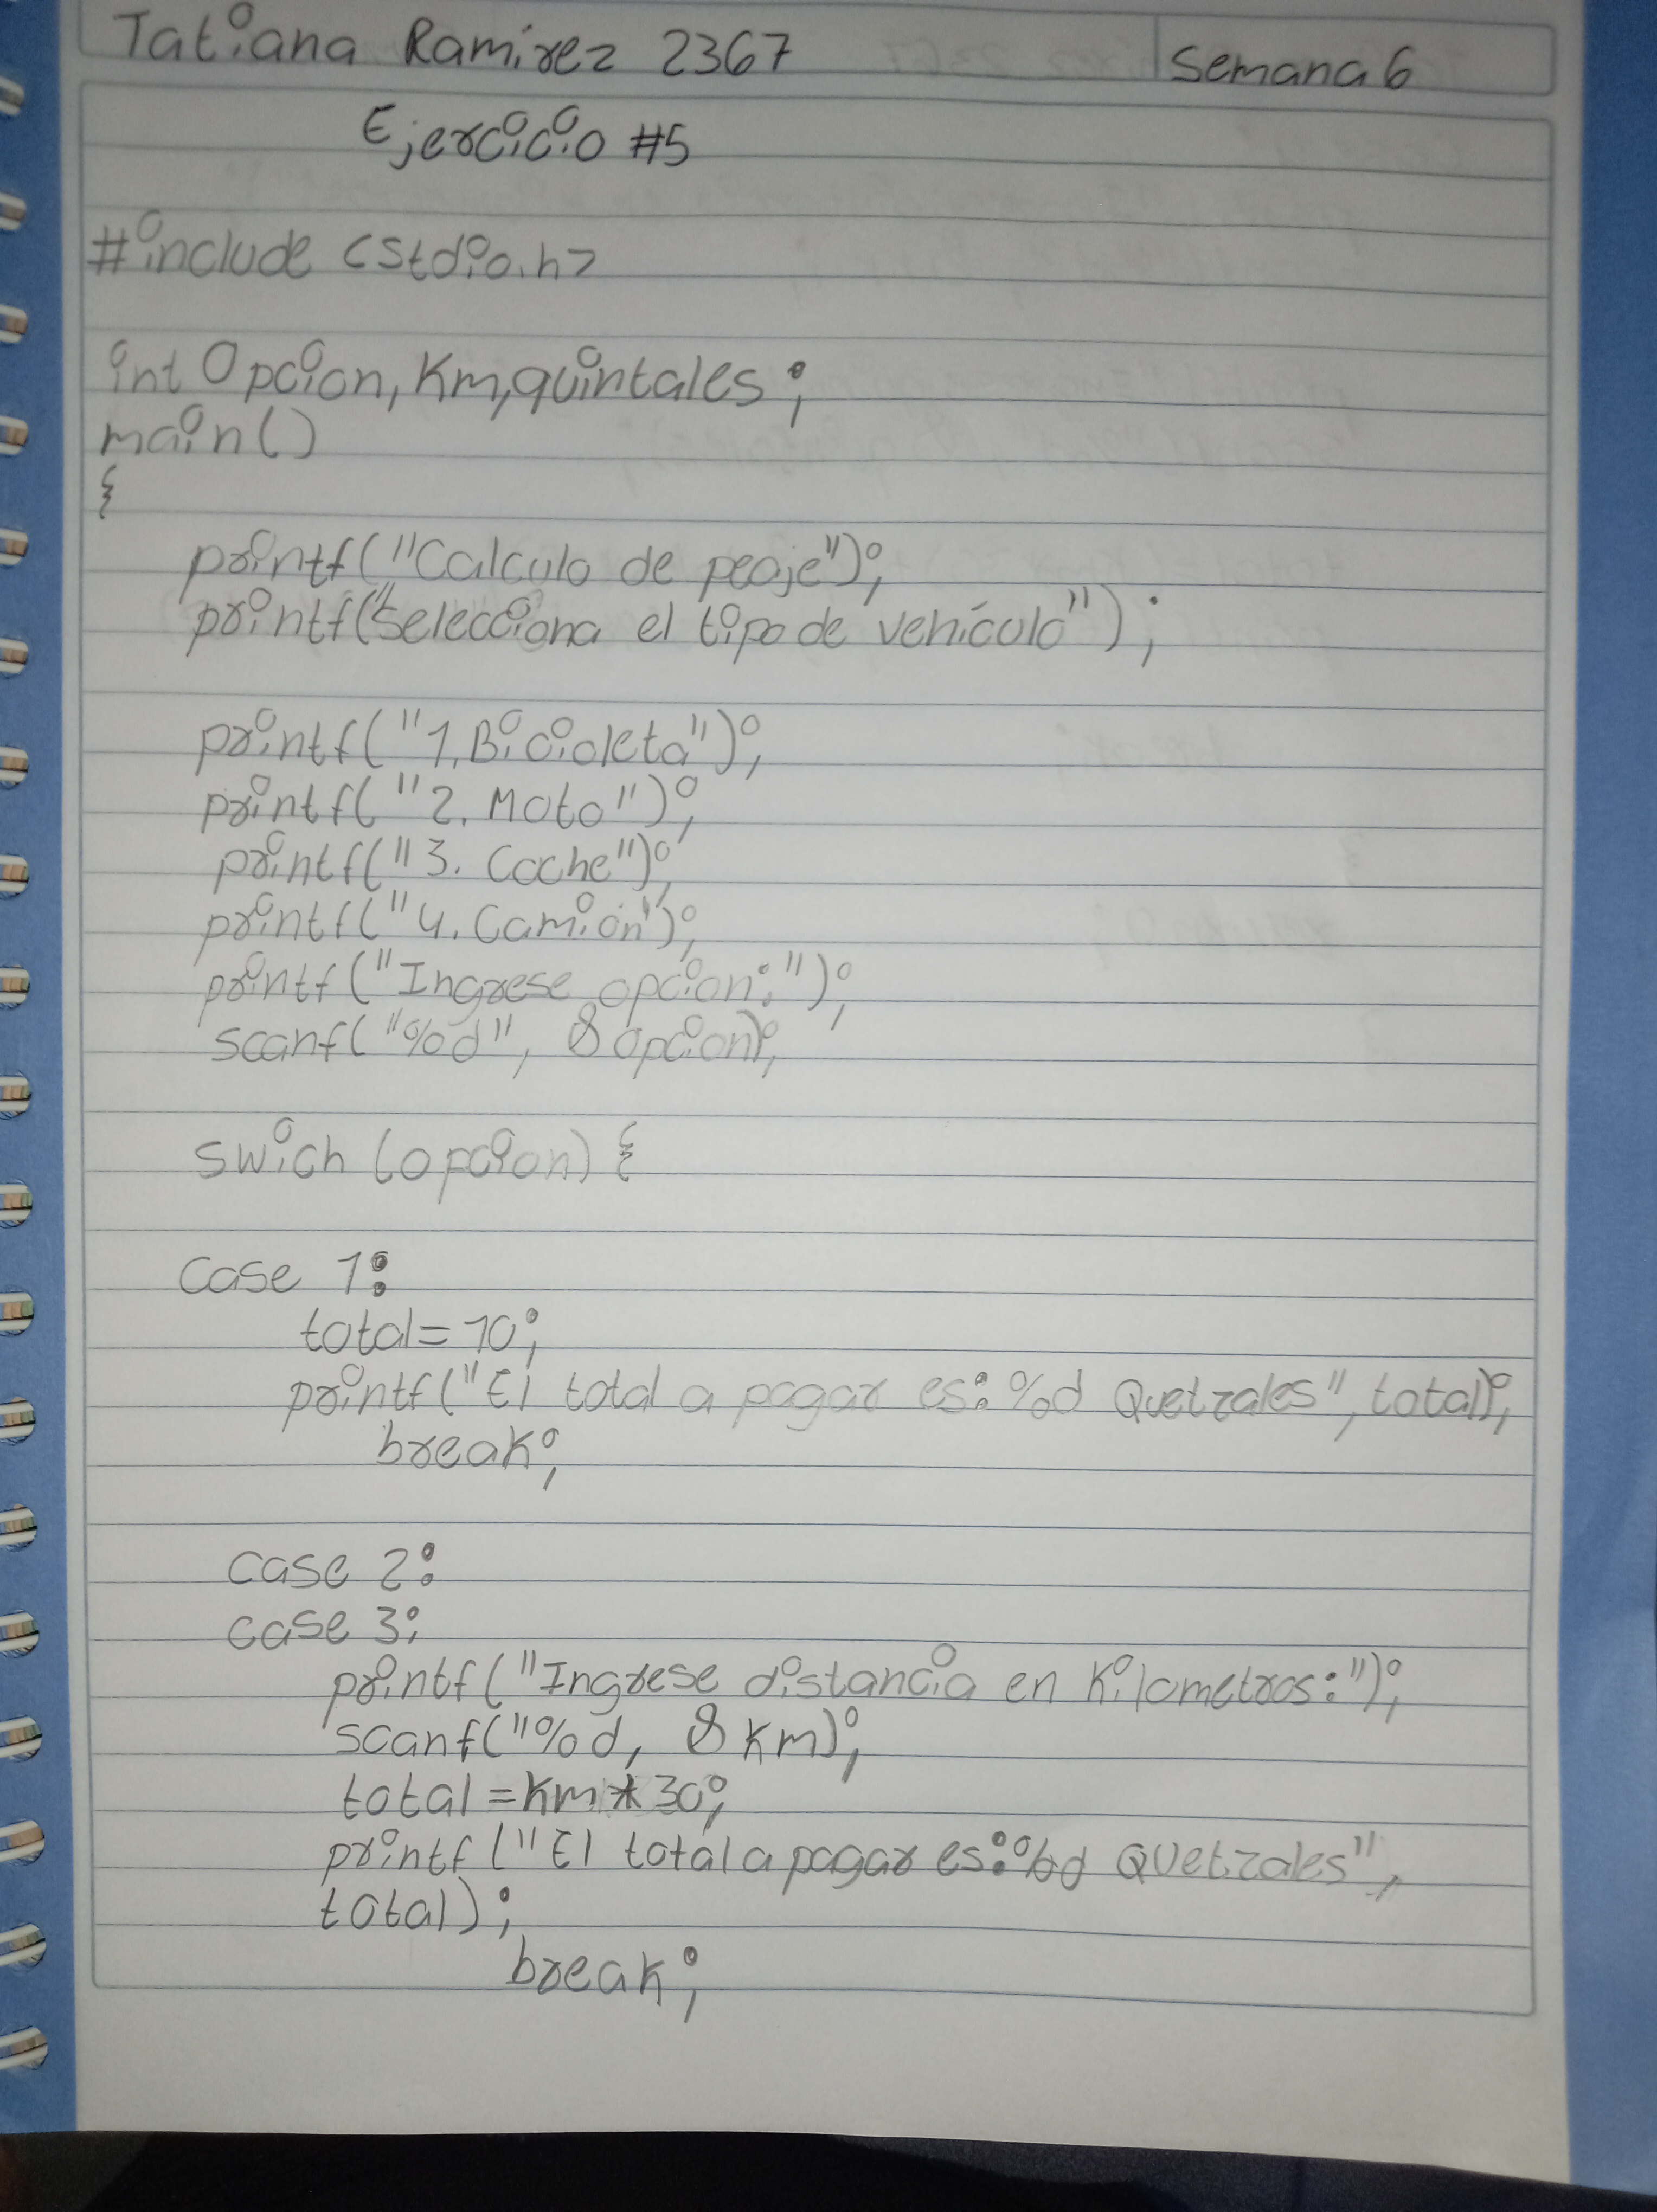 Tatiana Ramirez 2367 Semana 6
Ejercicio #5
#include <stdio.h>
int Opcion, Km, quintales;
main()
{
printf("Calculo de peaje");
printf("Selecciona el tipo de vehículo");
printf("1. Bicicleta");
printf("2. Moto");
printf("3. Coche");
printf("4. Camión");
printf("Ingrese opcion:");
scanf("%d", &opcion);
swich (opcion) {
case 1:
total=10;
printf("El total a pagar es: %d Quetzales", total);
break;
case 2:
case 3:
printf("Ingrese distancia en Kilometros:");
scanf("%d, &Km);
total = Km*30;
printf("El total a pagar es: %d Quetzales",
total);
break;